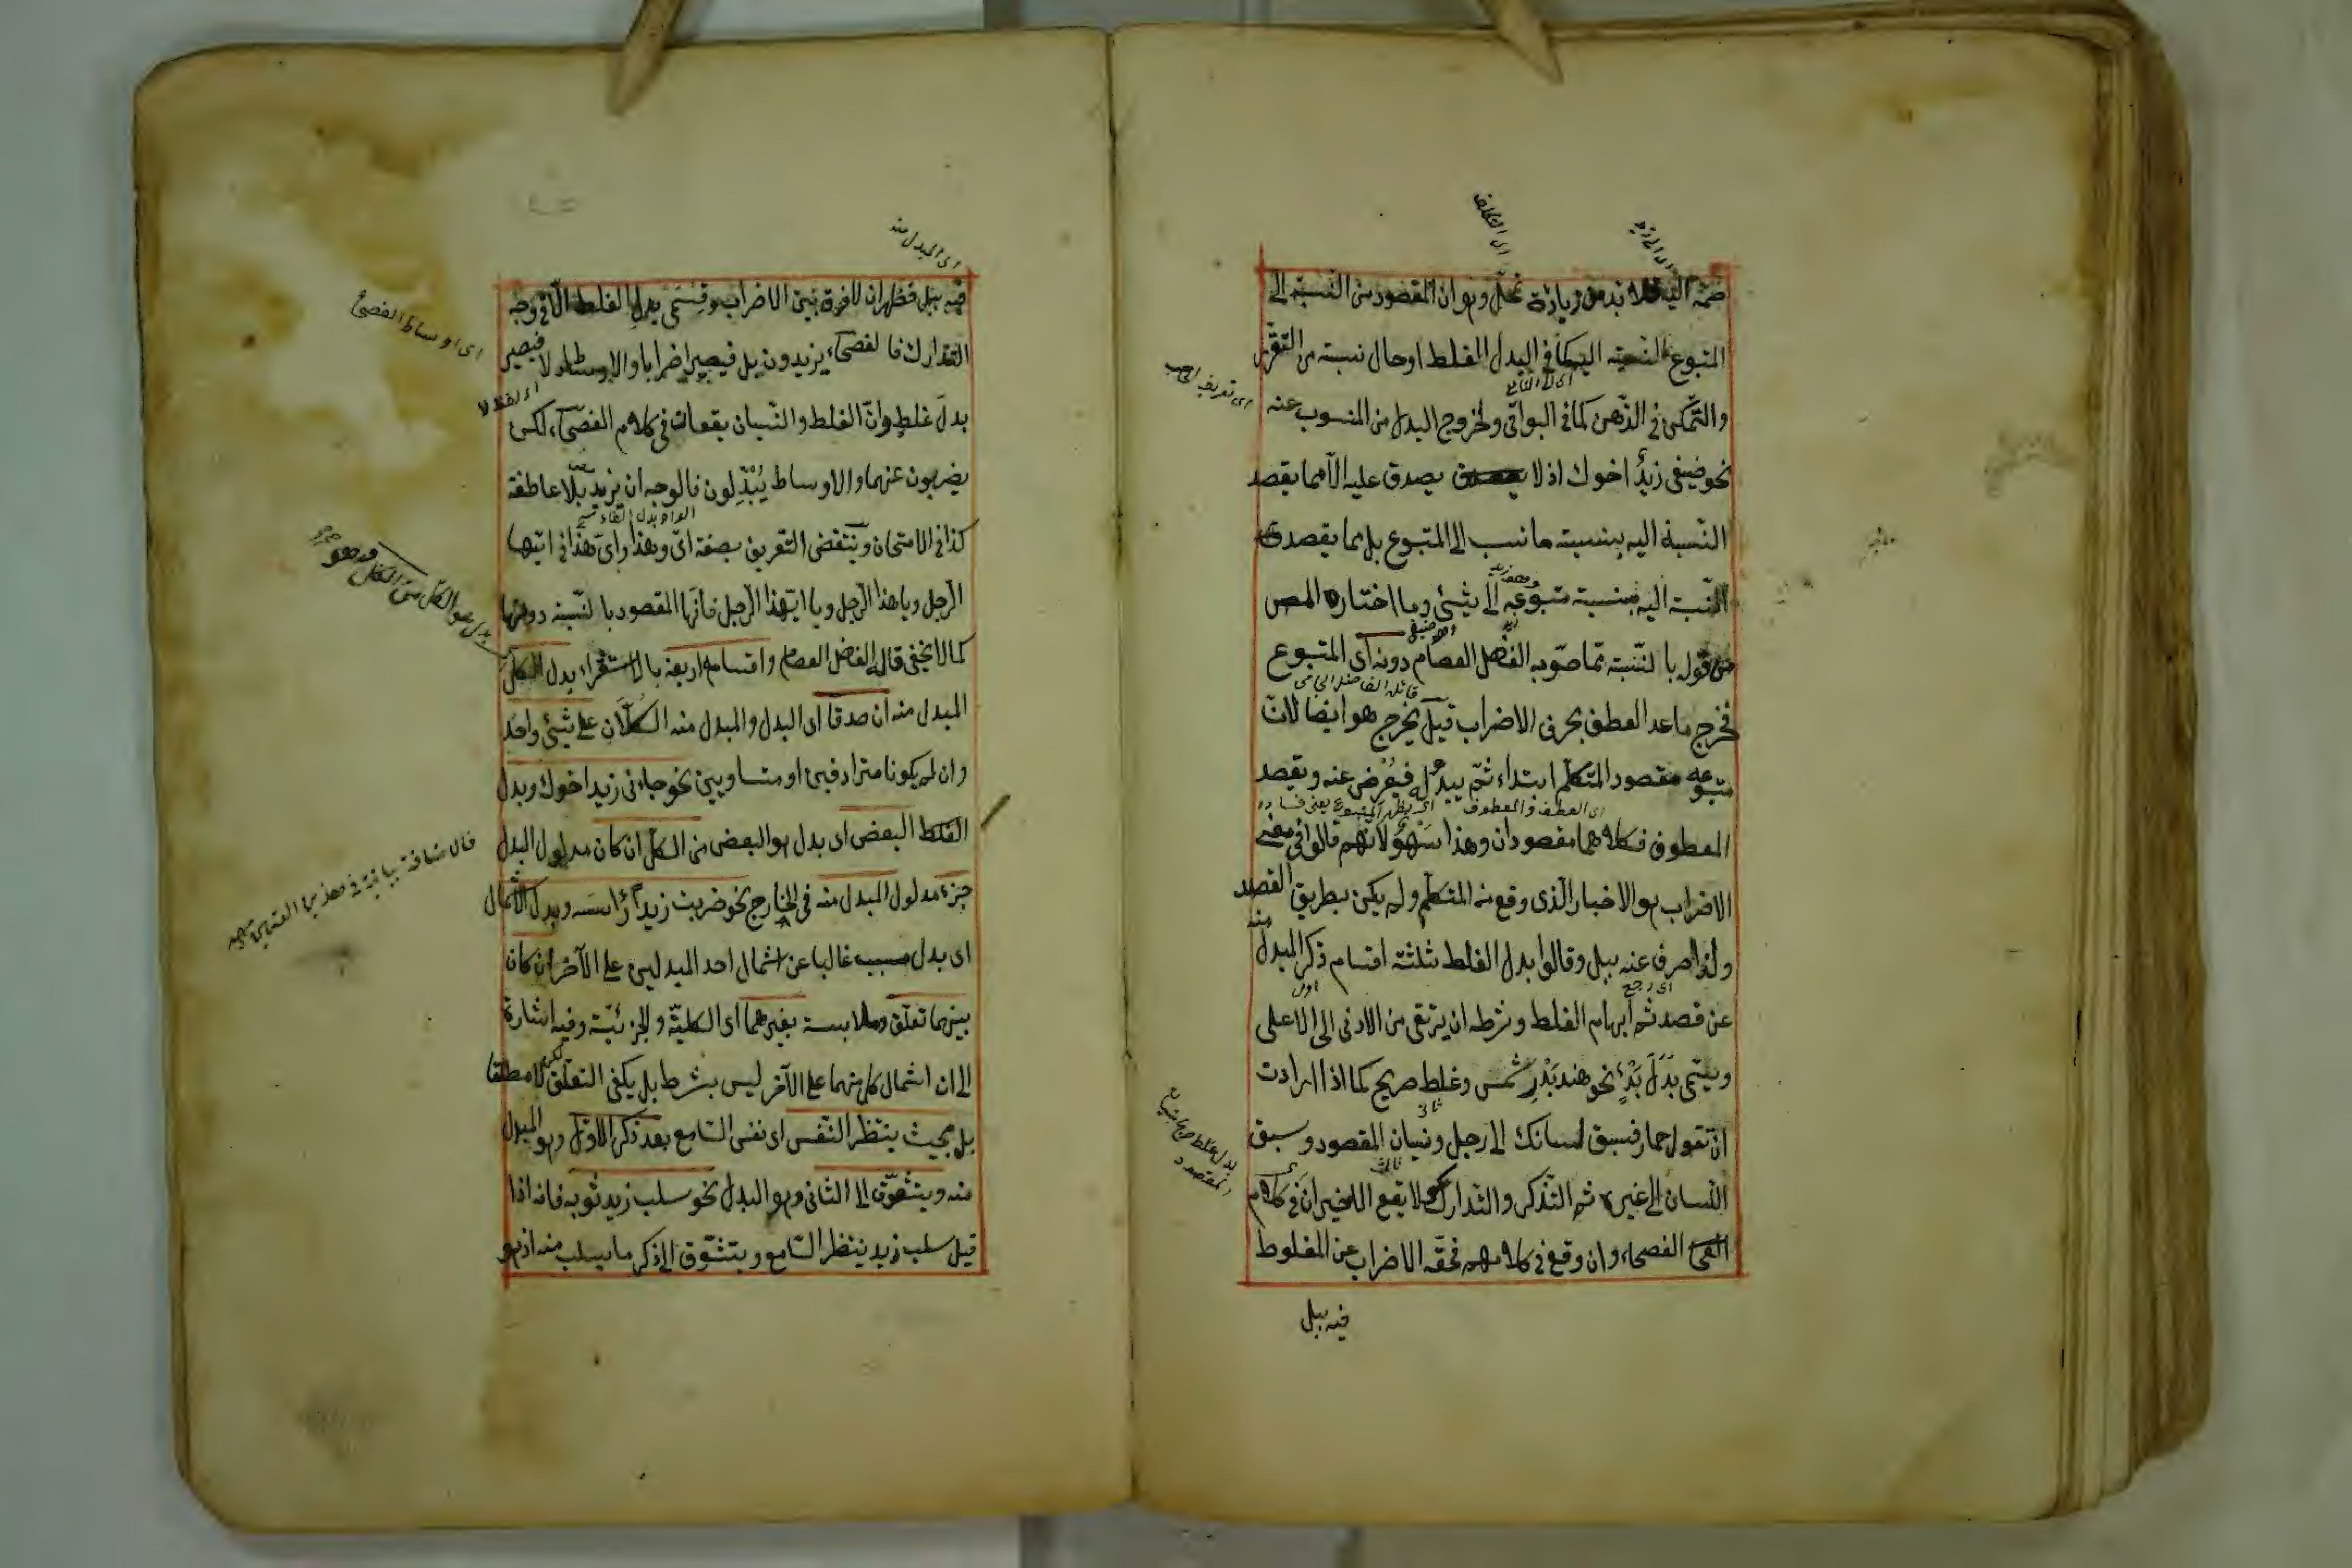 ضمه اليه فلا بد من زيادة تمحّل وهو ان المقصود من النسبة الى
المتبوع النسبة اليه كما في البدل الغلط او حال نسبته من التقرّر
والتمكّن في الذّهن كما في البواقي ولخروج البدل من المنسوب عنه
نحو ضيفى زيدٌ اخوك اذ لا يصدق عليه الآ مما يقصد
النّسبة اليه بنسبته ما نسب الى المتبوع بل مما يقصد
النّسبة اليه بنسبته متبوعه الى شيئ وما اختاره المص
من قوله بالنّسبة مما صوّبه الفضل العصام دونه اى المتبوع
فخرج ما عدا العطف بحرف الاضراب قيل يخرج هو ايضا لانّ
متبوعه مقصود المتكلّم ابتداء ثمّ يبدو له فيُعرض عنه ويقصد
المعطوف فكلاهما مقصودان وهذا سَهْوٌ لانّهم قالوا في معنى
الاضراب هو الاخبار الّذى وقع منه المتكلّم ولم يكن بطريق القصد
ولذا صرف عنه ببل وقالوا بدل الغلط ثلثة اقسام ذكر المبدل منه
عن قصد ثم ابهام الغلط وشرطه ان يرتقى من الادنى الى الاعلى
ويسمّى بَدَلَ بَدْءٍ نحو هند بَدْرٌ شمس وغلط صريح كما اذا اردت
ان تقول حمار فسبق لسانك الى رجل ونسيان المقصود وسبق
اللّسان الى غيره ثم التّذكر والتّدارك ولا يقع الاخيران في كلام
الفصحاء وان وقع في كلامهم فحقّه الاضراب عن المغلوط
فيه ببل
اى التكلف
اى الى زيد
ثانى
ثالث
اى المبدل منه
فيه ببل فظهر ان لا فرق بين الاضراب وقسمى بدل الغلط الّا في وجه
التّدارك فالفصحاء يزيدون بل فيصير اضرابا والاوساط لا فيصير
بدل غلط وانّ الغلط والنّسيان يقعان في كلام الفصحاء لكن
يضربون عنهما والاوساط يُبْدِلون فالوجه ان نزيد بلا عاطفة
كذا في الامتحان وينتقض التعريف بصفة اىّ وهذا واىّ هذا في ايّها
الرّجل ويا هذا الرّجل ويا ايّهذا الرّجل فانّها المقصود بالنّسبة دونها
كما لا يخفى قاله الفضل العصام واقسامه اربعة بالاستقراء بدل الكلّ
المبدل منه ان صدقا اى البدل والمبدل منه الكلّان على شيئ واحد
وان لم يكونا مترادفين او متساويين نحو جاءنى زيد اخوك وبدل
الغلط البعض اى بدل هو البعض من الكلّ ان كان مدلول البدل
جزء مدلول المبدل منه في الخارج نحو ضربت زيدا رأسه وبدل الاشتمال
اى بدل مسبب غالبا عن اشتمال احد المبدلين على الآخر ان كان
بينهما تعلّق وملابسة بغيرهما اى الكلّيّة والجزئيّة وفيه اشارة
الى ان اشتمال كل منهما على الآخر ليس بشرط بل يكفى التعلّق لكن لا مطلقا
بل بحيث ينتظر النّفس اى نفس السّامع بعد ذكر الاوّل وهو المبدل
منه ويتشوّق الى الثانى وهو البدل نحو سلب زيد ثوبه فانه اذا
قيل سلب زيد ينتظر السّامع ويتشوّق الى ذكر ما يسلب منه اذ هو
اى اوساط الفصحاء